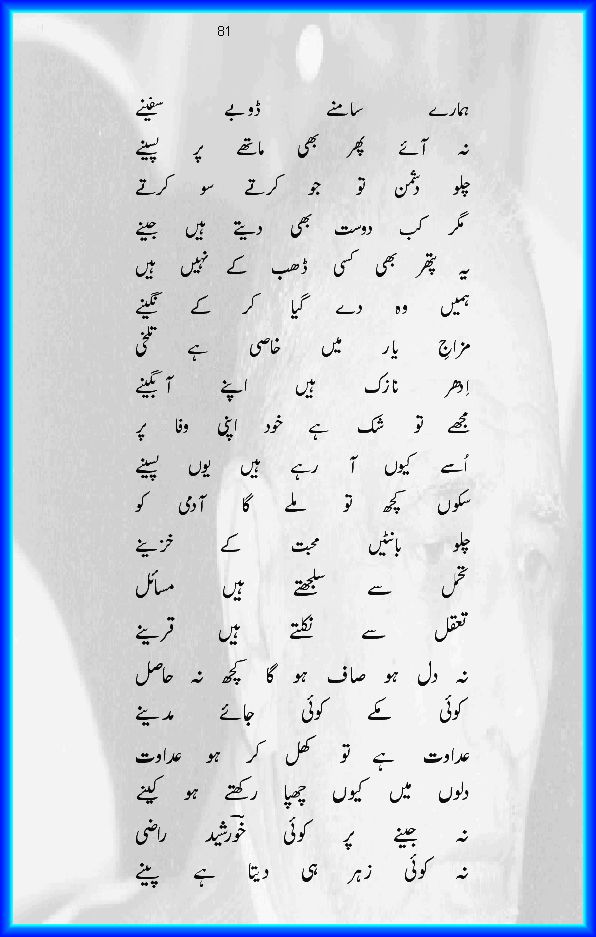 81
ہمارے سامنے ڈوبے سفینے
نہ آئے پھر بھی ماتھے پر پسینے
چلو دشمن تو جو کرتے سو کرتے
مگر کب دوست بھی دیتے ہیں جینے
یہ پتھر بھی کسی ڈھب کے نہیں ہیں
ہمیں وہ دے گیا کر کے نگینے
مزاجِ یار میں خاصی ہے تلخی
اِدھر نازک ہیں اپنے آبگینے
مجھے تو شک ہے خود اپنی وفا پر
اُسے کیوں آ رہے ہیں یوں پسینے
سکوں کچھ تو ملے گا آدمی کو
چلو بانٹیں محبت کے خزینے
تحمل سے سلجھتے ہیں مسائل
تعقل سے نکلتے ہیں قرینے
نہ دل ہو صاف ہو گا کچھ نہ حاصل
کوئی مکے کوئی جائے مدینے
عداوت ہے تو کھل کر ہو عداوت
دلوں میں کیوں چھپا رکھتے ہو کینے
نہ جینے پر کوئی خورشیدؔ راضی
نہ کوئی زہر ہی دیتا ہے پینے